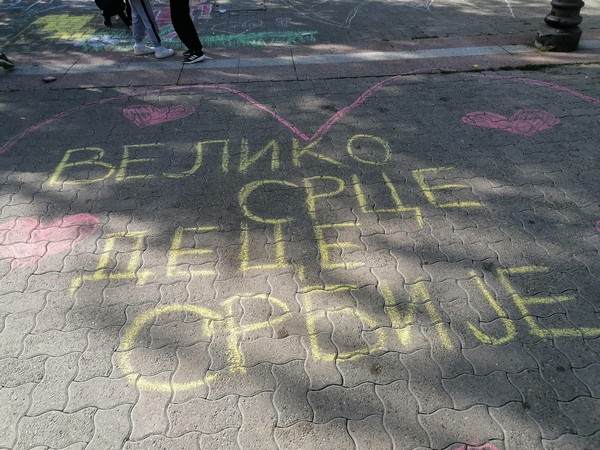 ВЕЛИКО
СРЦЕ
ДЕЦЕ
СРБИЈЕ